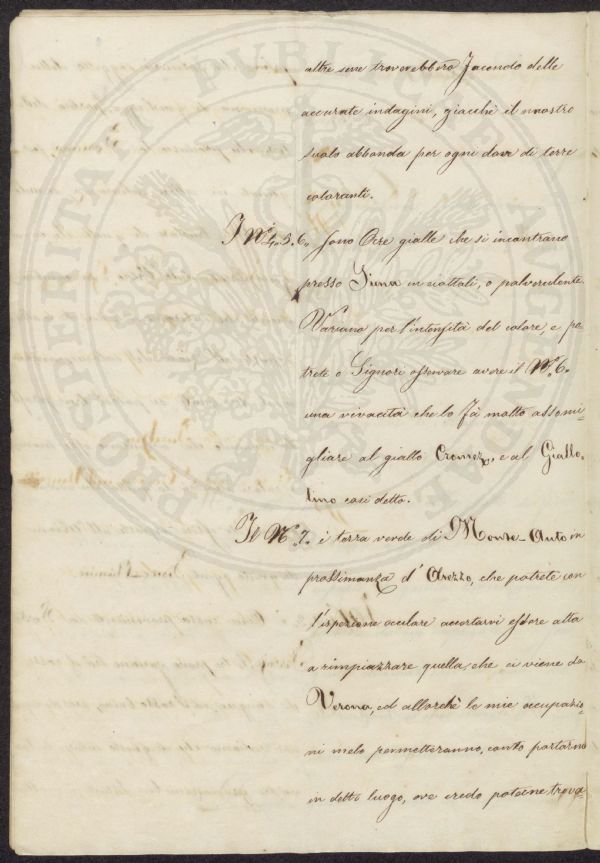 altre sene troverebbero facendo delle
accurate indagini, giacchè il nostro
suolo abbonda per ogni dove di terre
coloranti.
I Nⁱ 4. 5. 6. Sono Ocre gialle che si incontrano
presso Siena in iiattali, o polverulente.
Variano per l'intensità del colore, e po
trete o Signori osservare avere il N.º 6.
una vivacità che lo fà molto assomi-
gliare al giallo Cromo, e al Giallo-
lino così detto.
Il Nº. 7. è terra verde di Monte-Auto in
prossimanza d'Arezzo, che potrete con
l'ispezione oculare accertarvi essere atta
a rimpiazzare quella, che ci viene da
Verona, ed allorchè le mie occupazio-
ni melo permetteranno, conto portarmi
in detto luogo, ove credo poterne trova-
PROSPERITATI PUBLICAE AUGENDAE